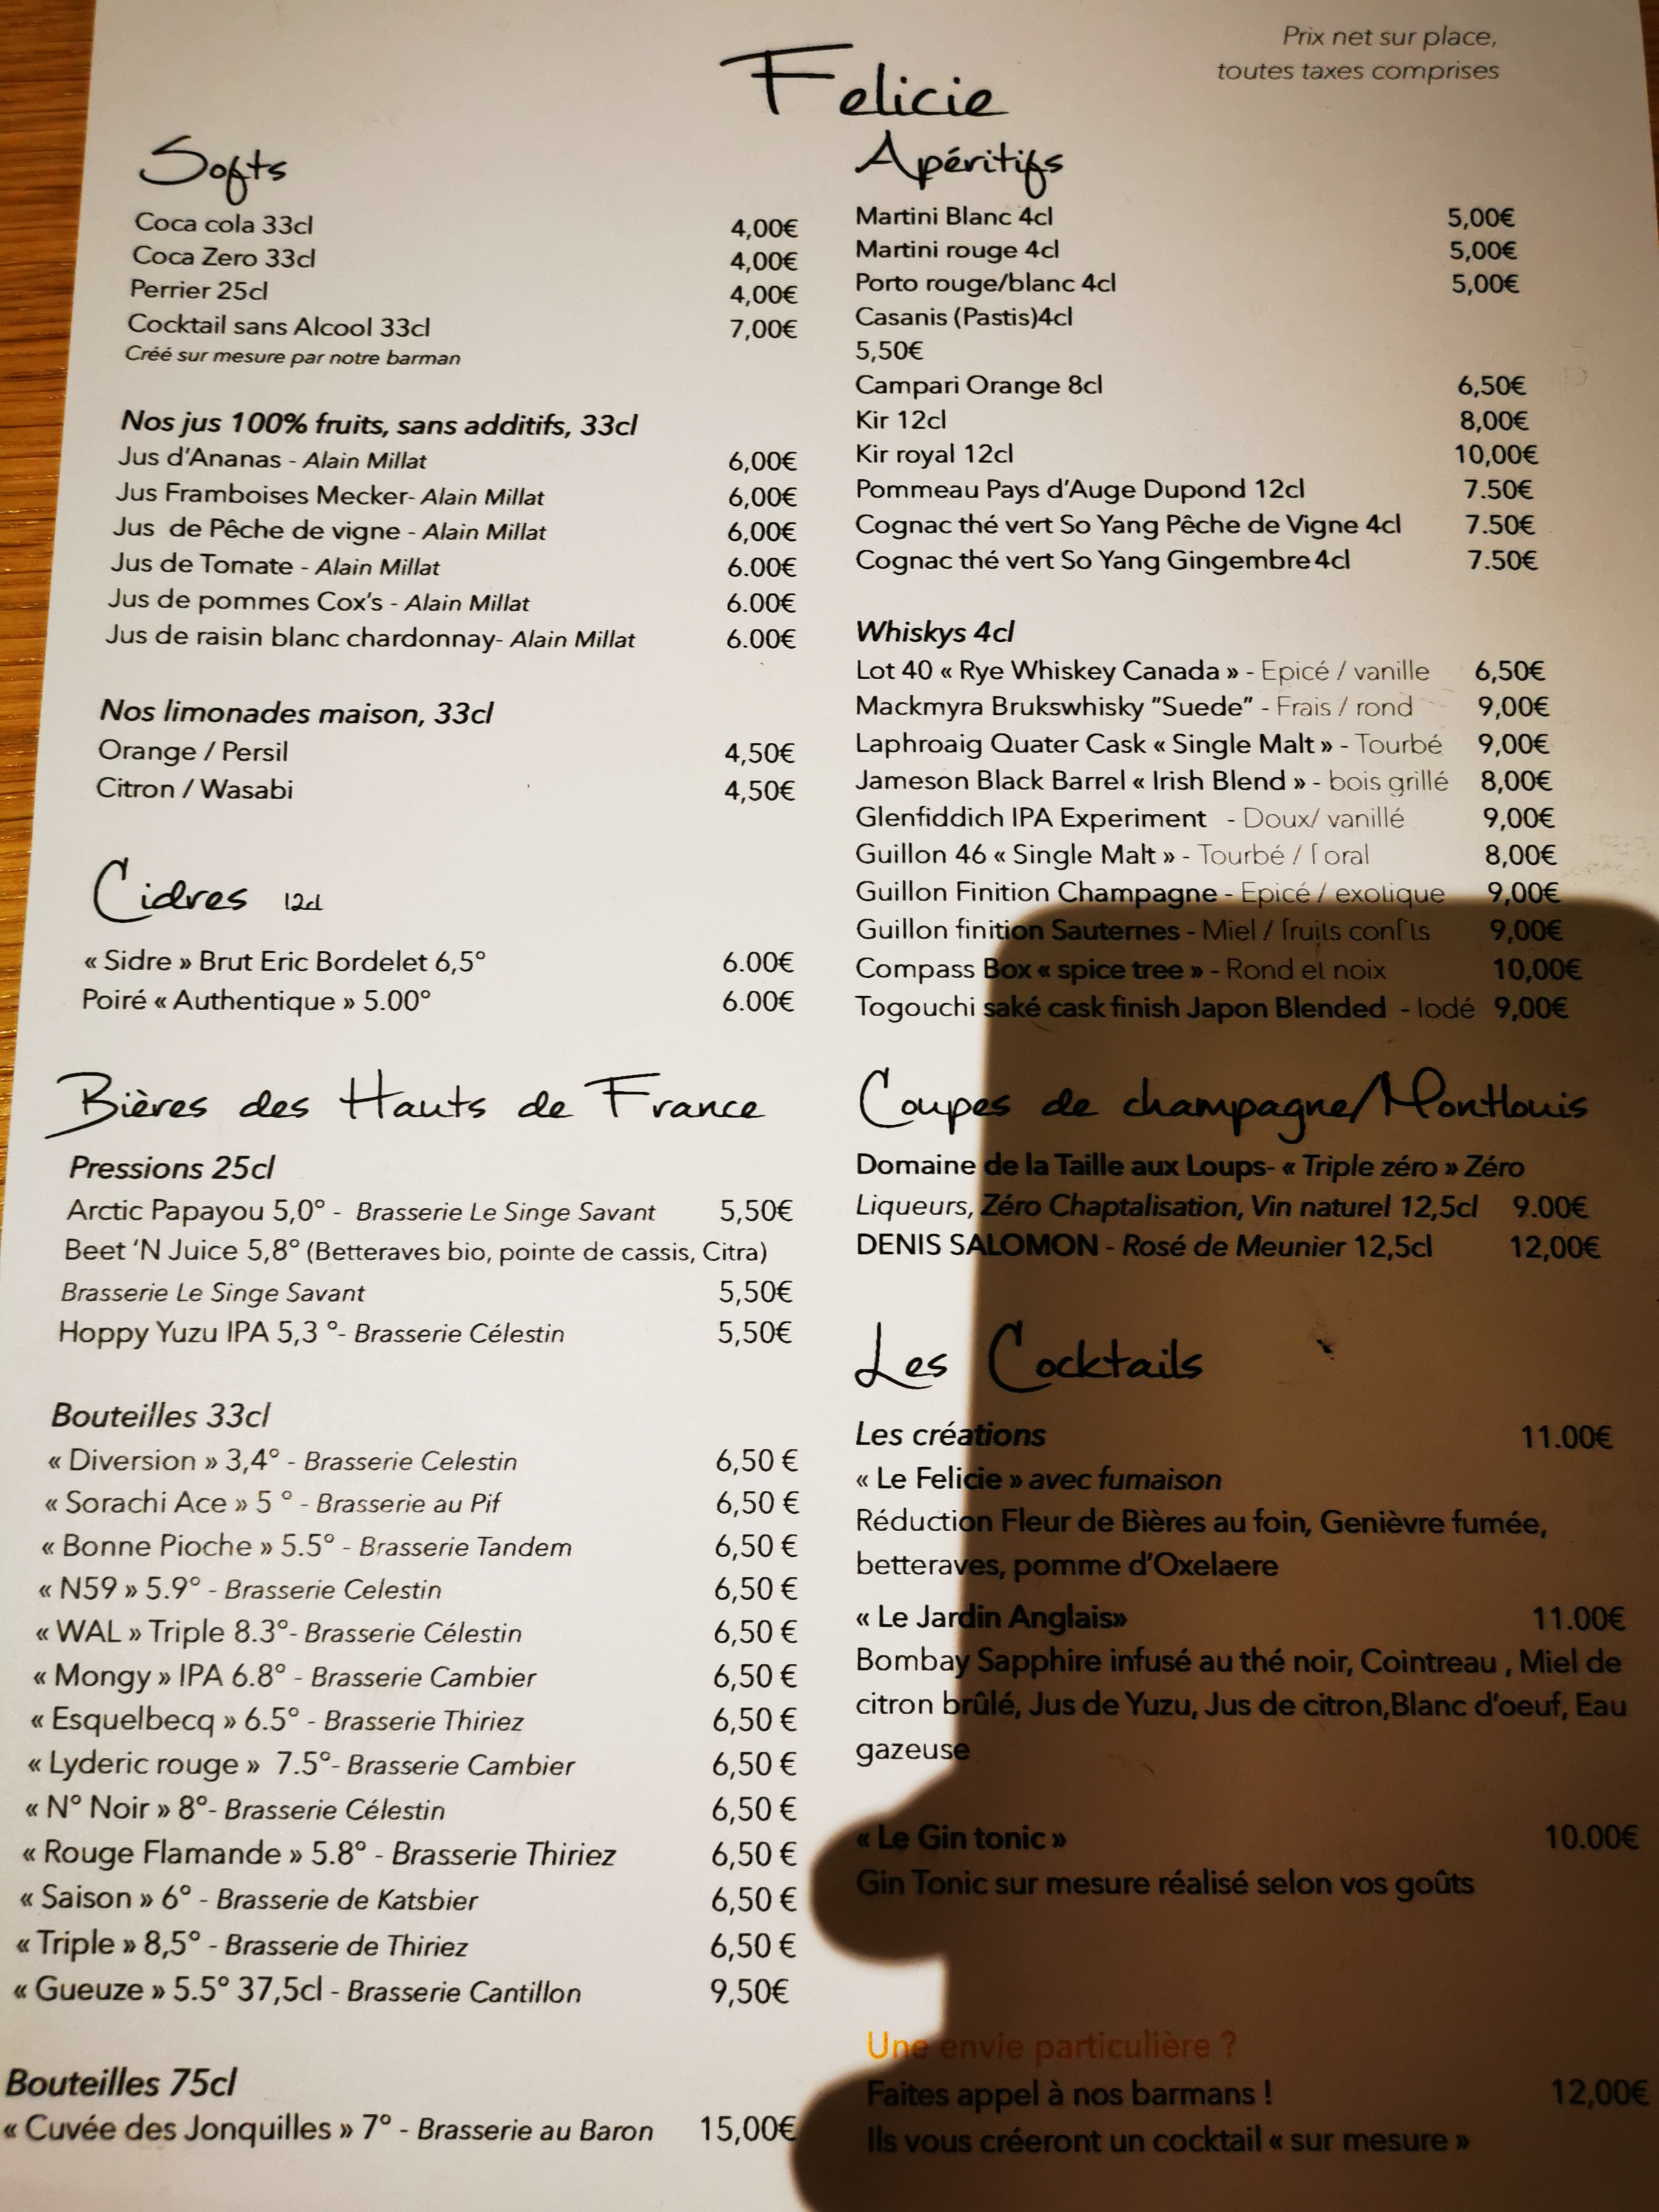 Prix net sur place,
toutes taxes comprises
Felicie
Softs
Coca cola 33cl 4,00€
Coca Zero 33cl 4,00€
Perrier 25cl 4,00€
Cocktail sans Alcool 33cl 7,00€
Créé sur mesure par notre barman
Nos jus 100% fruits, sans additifs, 33cl
Jus d'Ananas - Alain Millat 6,00€
Jus Framboises Mecker- Alain Millat 6,00€
Jus de Pêche de vigne - Alain Millat 6,00€
Jus de Tomate - Alain Millat 6.00€
Jus de pommes Cox's - Alain Millat 6.00€
Jus de raisin blanc chardonnay- Alain Millat 6.00€
Nos limonades maison, 33cl
Orange / Persil 4,50€
Citron / Wasabi 4,50€
Cidres 12cl
« Sidre » Brut Eric Bordelet 6,5° 6.00€
Poiré « Authentique » 5.00° 6.00€
Bières des Hauts de France
Pressions 25cl
Arctic Papayou 5,0° - Brasserie Le Singe Savant 5,50€
Beet 'N Juice 5,8° (Betteraves bio, pointe de cassis, Citra)
Brasserie Le Singe Savant 5,50€
Hoppy Yuzu IPA 5,3 °- Brasserie Célestin 5,50€
Bouteilles 33cl
« Diversion » 3,4° - Brasserie Celestin 6,50 €
« Sorachi Ace » 5 ° - Brasserie au Pif 6,50 €
« Bonne Pioche » 5.5° - Brasserie Tandem 6,50 €
« N59 » 5.9° - Brasserie Celestin 6,50 €
« WAL » Triple 8.3°- Brasserie Célestin 6,50 €
« Mongy » IPA 6.8° - Brasserie Cambier 6,50 €
« Esquelbecq » 6.5° - Brasserie Thiriez 6,50 €
« Lyderic rouge » 7.5°- Brasserie Cambier 6,50 €
« N° Noir » 8°- Brasserie Célestin 6,50 €
« Rouge Flamande » 5.8° - Brasserie Thiriez 6,50 €
« Saison » 6° - Brasserie de Katsbier 6,50 €
« Triple » 8,5° - Brasserie de Thiriez 6,50 €
« Gueuze » 5.5° 37,5cl - Brasserie Cantillon 9,50€
Bouteilles 75cl
« Cuvée des Jonquilles » 7° - Brasserie au Baron 15,00€
Apéritifs
Martini Blanc 4cl 5,00€
Martini rouge 4cl 5,00€
Porto rouge/blanc 4cl 5,00€
Casanis (Pastis)4cl
5,50€
Campari Orange 8cl 6,50€
Kir 12cl 8,00€
Kir royal 12cl 10,00€
Pommeau Pays d'Auge Dupond 12cl 7.50€
Cognac thé vert So Yang Pêche de Vigne 4cl 7.50€
Cognac thé vert So Yang Gingembre 4cl 7.50€
Whiskys 4cl
Lot 40 « Rye Whiskey Canada » - Epicé / vanille 6,50€
Mackmyra Brukswhisky "Suede" - Frais / rond 9,00€
Laphroaig Quater Cask « Single Malt » - Tourbé 9,00€
Jameson Black Barrel « Irish Blend » - bois grillé 8,00€
Glenfiddich IPA Experiment - Doux/ vanillé 9,00€
Guillon 46 « Single Malt » - Tourbé / floral 8,00€
Guillon Finition Champagne - Epicé / exotique 9,00€
Guillon finition Sauternes - Miel / fruits confits 9,00€
Compass Box « spice tree » - Rond et noix 10,00€
Togouchi saké cask finish Japon Blended - Iodé 9,00€
Coupes de champagne/Montlouis
Domaine de la Taille aux Loups- « Triple zéro » Zéro
Liqueurs, Zéro Chaptalisation, Vin naturel 12,5cl 9.00€
DENIS SALOMON - Rosé de Meunier 12,5cl 12,00€
Les Cocktails
Les créations 11.00€
« Le Felicie » avec fumaison
Réduction Fleur de Bières au foin, Genièvre fumée,
betteraves, pomme d'Oxelaere
« Le Jardin Anglais» 11.00€
Bombay Sapphire infusé au thé noir, Cointreau , Miel de
citron brûlé, Jus de Yuzu, Jus de citron,Blanc d'oeuf, Eau
gazeuse
« Le Gin tonic » 10.00€
Gin Tonic sur mesure réalisé selon vos goûts
Une envie particulière ?
Faites appel à nos barmans ! 12,00€
Ils vous créeront un cocktail « sur mesure »